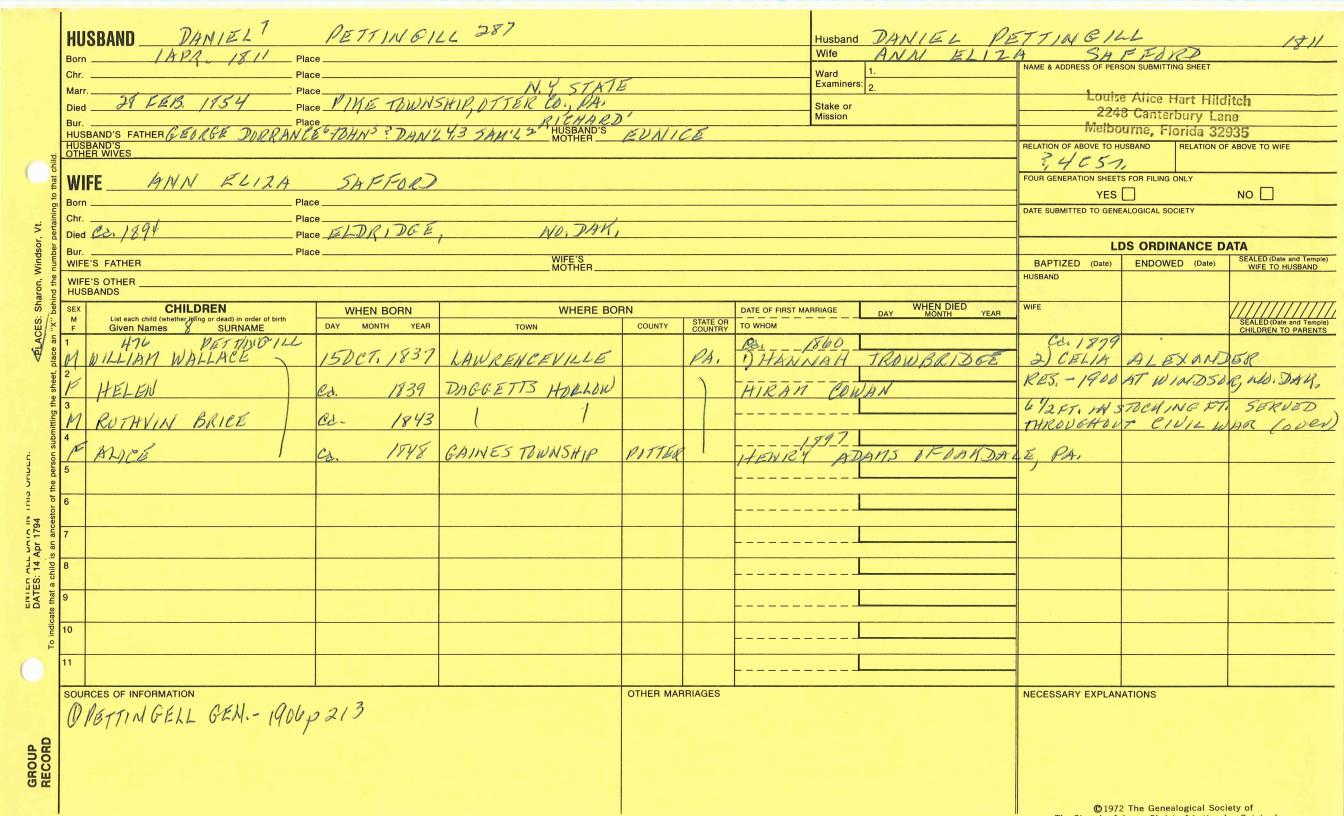 HUSBAND DANIEL 7 PETTINGILL 287
Born 1 APR. 1811 Place
Chr. Place
Marr. Place N.Y. STATE
Died 28 FEB. 1854 Place PIKE TOWNSHIP, OTTER CO., PA.
Bur. Place RICHARD'
HUSBAND'S FATHER GEORGE DORRANCE 6 JOHN 5 ? DAN'L 4 3 SAM'L 2 HUSBAND'S MOTHER EUNICE
HUSBAND'S OTHER WIVES
Husband DANIEL PETTINGILL 1811
Wife ANN ELIZA SAFFORD
Ward Examiners: 1.
2.
Stake or Mission
NAME & ADDRESS OF PERSON SUBMITTING SHEET
Louise Alice Hart Hilditch
2248 Canterbury Lane
Melbourne, Florida 32935
RELATION OF ABOVE TO HUSBAND RELATION OF ABOVE TO WIFE
?, 4C5r,
FOUR GENERATION SHEETS FOR FILING ONLY
YES NO
DATE SUBMITTED TO GENEALOGICAL SOCIETY
WIFE ANN ELIZA SAFFORD
Born Place
Chr. Place
Died Ca. 1894 Place ELDRIDGE, NO. DAK.
Bur. Place
WIFE'S FATHER WIFE'S MOTHER
WIFE'S OTHER HUSBANDS
LDS ORDINANCE DATA
BAPTIZED (Date) ENDOWED (Date) SEALED (Date and Temple) WIFE TO HUSBAND
HUSBAND
WIFE
SEALED (Date and Temple) CHILDREN TO PARENTS
SEX M F CHILDREN WHEN BORN WHERE BORN DATE OF FIRST MARRIAGE WHEN DIED
List each child (whether living or dead) in order of birth
Given Names 8 SURNAME DAY MONTH YEAR TOWN COUNTY STATE OR COUNTRY TO WHOM DAY MONTH YEAR
1 476 PETTINGILL Ca. 1860 Ca. 1879
M WILLIAM WALLACE 15 OCT. 1837 LAWRENCEVILLE PA. 1) HANNAH TROWBRIDGE 2) CELIA ALEXANDER
2 RES. - 1900 AT WINDSOR, NO. DAK.
F HELEN Ca. 1839 DAGGETTS HOLLOW HIRAM COWAN
3 6 1/2 FT. IN STOCKING FT. SERVED
M RUTHVIN BRICE Ca. 1843 THROUGHOUT CIVIL WAR (OVER)
4 1897
F ALICE Ca. 1848 GAINES TOWNSHIP POTTER HENRY ADAMS OF OAKDALE, PA.
5
6
7
8
9
10
11
SOURCES OF INFORMATION OTHER MARRIAGES NECESSARY EXPLANATIONS
① PETTINGELL GEN. - 1906 p 213
©1972 The Genealogical Society of
PLACES: Sharon, Windsor, Vt.
To indicate that a child is an ancestor of the person submitting the sheet, place an "X" behind the number pertaining to that child.
ENTER ALL DATA IN THIS ORDER:
DATES: 14 Apr 1794
GROUP RECORD